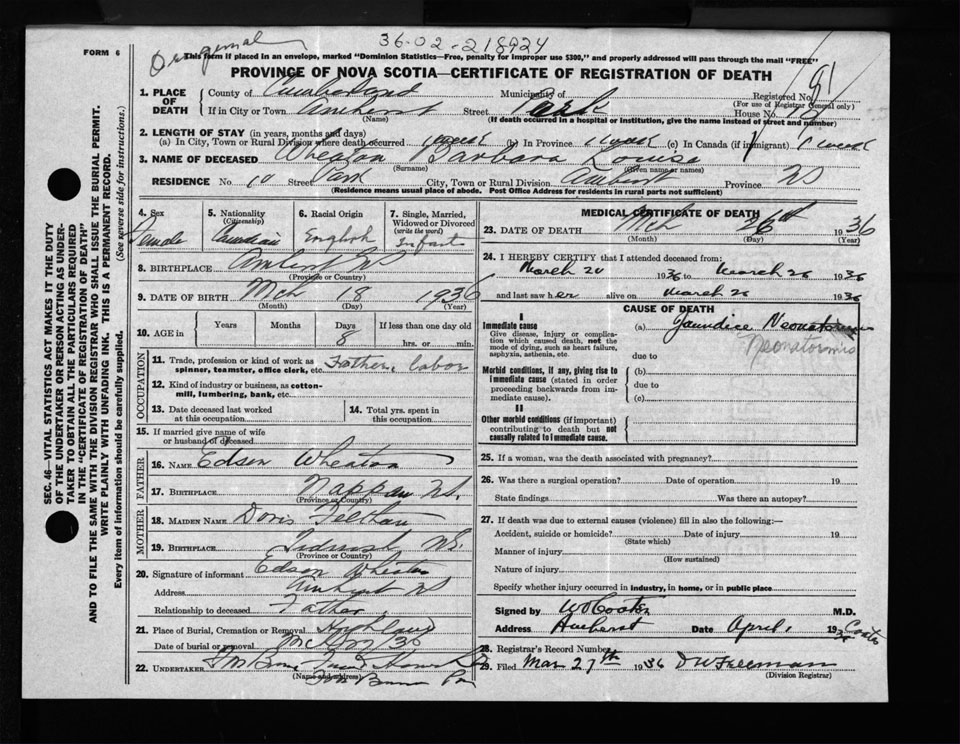 36-02-218924
Original
FORM 6
This form if placed in an envelope, marked "Dominion Statistics—Free, penalty for improper use $300," and properly addressed will pass through the mail "FREE"
PROVINCE OF NOVA SCOTIA—CERTIFICATE OF REGISTRATION OF DEATH
SEC. 46—VITAL STATISTICS ACT MAKES IT THE DUTY
OF THE UNDERTAKER OR PERSON ACTING AS UNDER-
TAKER TO OBTAIN ALL THE PARTICULARS REQUIRED
IN THE "CERTIFICATE OF REGISTRATION OF DEATH"
AND TO FILE THE SAME WITH THE DIVISION REGISTRAR WHO SHALL ISSUE THE BURIAL PERMIT.
WRITE PLAINLY WITH UNFADING INK. THIS IS A PERMANENT RECORD.
Every item of information should be carefully supplied. (See reverse side for instructions.)
1. PLACE OF DEATH
County of Cumberland Municipality of Registered No.
(For use of Registrar General only)
If in City or Town Amherst Street Park House No.
(Name) (If death occurred in a hospital or institution, give the name instead of street and number)
2. LENGTH OF STAY (in years, months and days)
(a) In City, Town or Rural Division where death occurred 1 week (b) In Province 1 week (c) In Canada (if immigrant) 1 week
3. NAME OF DECEASED Wheaton Barbara Louise
(Surname) (Given name or names)
RESIDENCE No. 10 Street Park City, Town or Rural Division Amherst Province NS
(Residence means usual place of abode. Post Office Address for residents in rural parts not sufficient)
4. Sex Female
5. Nationality (Citizenship) Canadian
6. Racial Origin English
7. Single, Married, Widowed or Divorced (write the word) Infant
8. BIRTHPLACE Amherst NS
(Province or Country)
9. DATE OF BIRTH Mch 18 1936
(Month) (Day) (Year)
10. AGE in Years Months Days 8 If less than one day old hrs. or min.
OCCUPATION
11. Trade, profession or kind of work as spinner, teamster, office clerk, etc. Father, labor
12. Kind of industry or business, as cotton-mill, lumbering, bank, etc.
13. Date deceased last worked at this occupation
14. Total yrs. spent in this occupation
15. If married give name of wife or husband of deceased
FATHER
16. NAME Edson Wheaton
17. BIRTHPLACE Nappan NS.
(Province or Country)
MOTHER
18. MAIDEN NAME Doris
19. BIRTHPLACE Tidnish NS.
(Province or Country)
20. Signature of informant Edson Wheaton
Address Amherst NS
Relationship to deceased Father
21. Place of Burial, Cremation or Removal Highland
Date of burial or removal 36
22. UNDERTAKER
(Name and address)
MEDICAL CERTIFICATE OF DEATH
23. DATE OF DEATH Mch 26th 1936
(Month) (Day) (Year)
24. I HEREBY CERTIFY that I attended deceased from:
March 20 1936 to March 26 1936
and last saw her alive on March 26 1936
CAUSE OF DEATH
I
Immediate cause
Give disease, injury or complication which caused death, not the mode of dying, such as heart failure, asphyxia, asthenia, etc.
(a) Jaundice Neonatorum
due to
Morbid conditions, if any, giving rise to immediate cause (stated in order proceeding backwards from immediate cause).
(b)
due to
(c)
II
Other morbid conditions (if important) contributing to death but not causally related to immediate cause.
25. If a woman, was the death associated with pregnancy?
26. Was there a surgical operation? Date of operation 19
State findings Was there an autopsy?
27. If death was due to external causes (violence) fill in also the following:—
Accident, suicide or homicide? Date of injury 19
(State which)
Manner of injury
(How sustained)
Nature of injury
Specify whether injury occurred in industry, in home, or in public place
Signed by M.D.
Address Amherst Date April, 19
28. Registrar's Record Number
29. Filed Mar 27th 1936 D W Freeman
(Division Registrar)